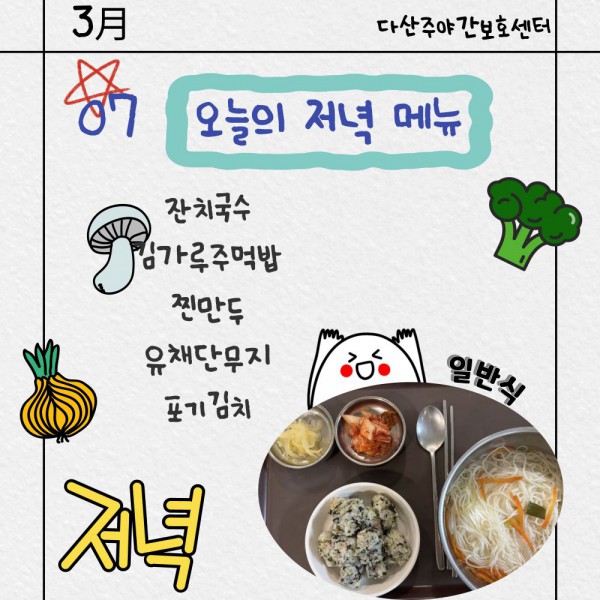 3月
다산주야간보호센터
07
오늘의 저녁 메뉴
잔치국수
김가루주먹밥
찐만두
유채단무지
포기김치
일반식
저녁